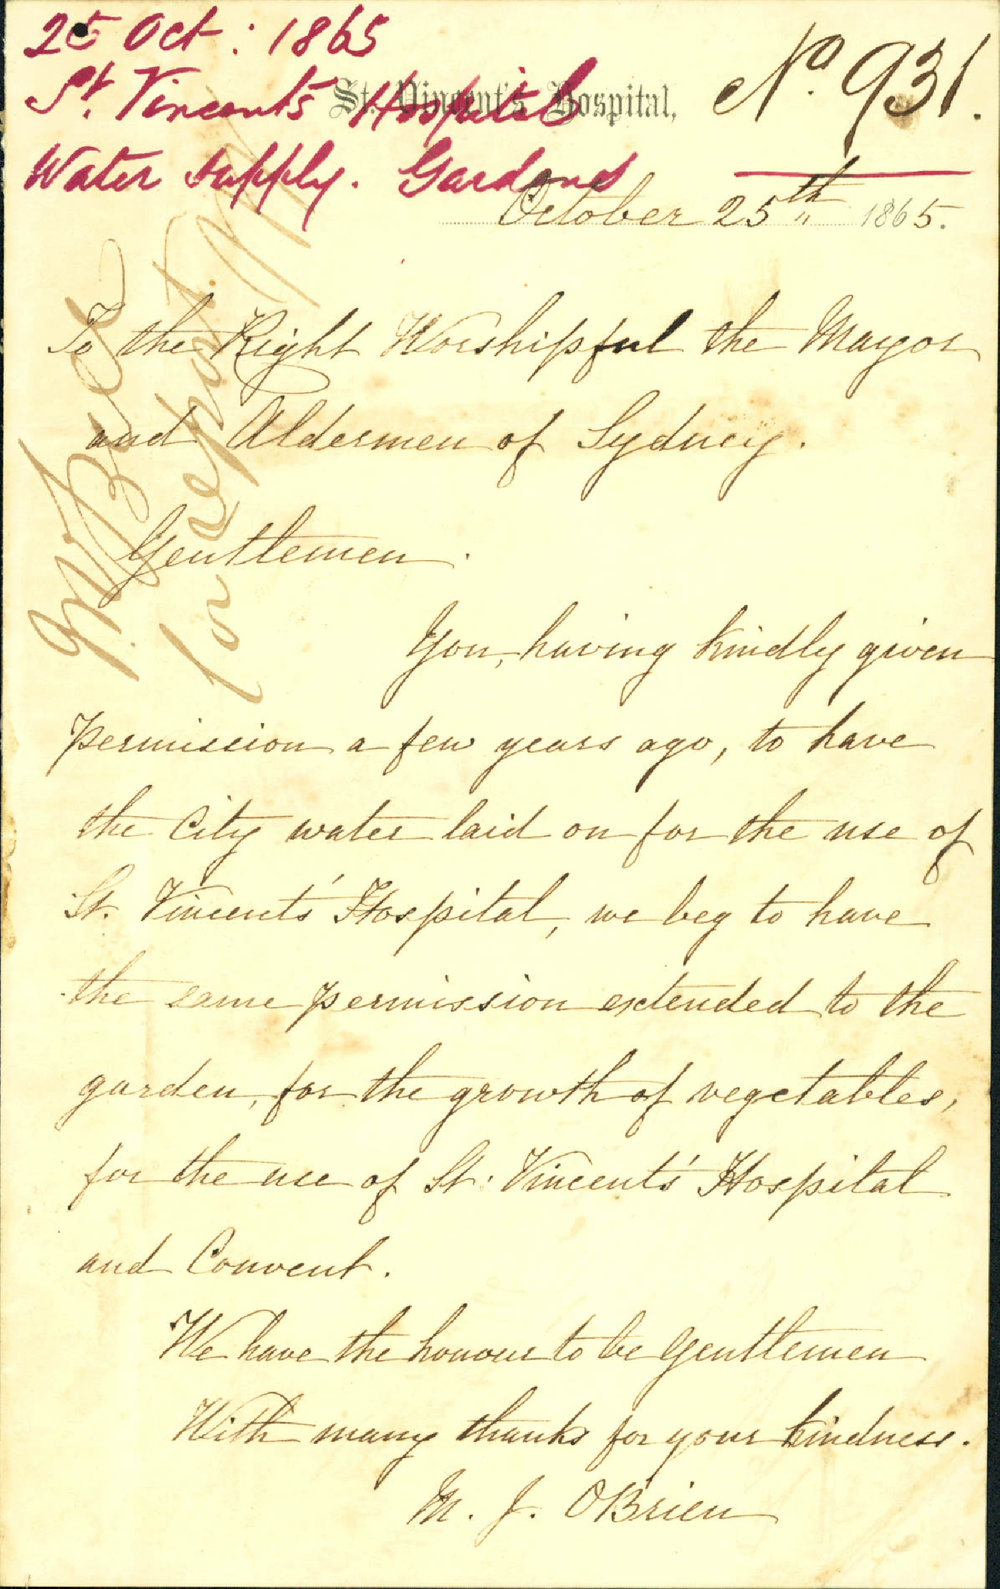 25 Oct: 1865
St. Vincents Hospital
Water supply. Gardens
No. 931.
St. Vincent's Hospital,
October 25th 1865.
To the Right Worshipful the Mayor
and Aldermen of Sydney.
Gentlemen.
You, having kindly given
permission a few years ago, to have
the City water laid on for the use of
St. Vincents' Hospital, we beg to have
the same permission extended to the
garden, for the growth of vegetables,
for the use of St. Vincents' Hospital
and Convent.
We have the honour to be Gentlemen
With many thanks for your kindness.
M. J. OBrien
Mr Bell
for report.